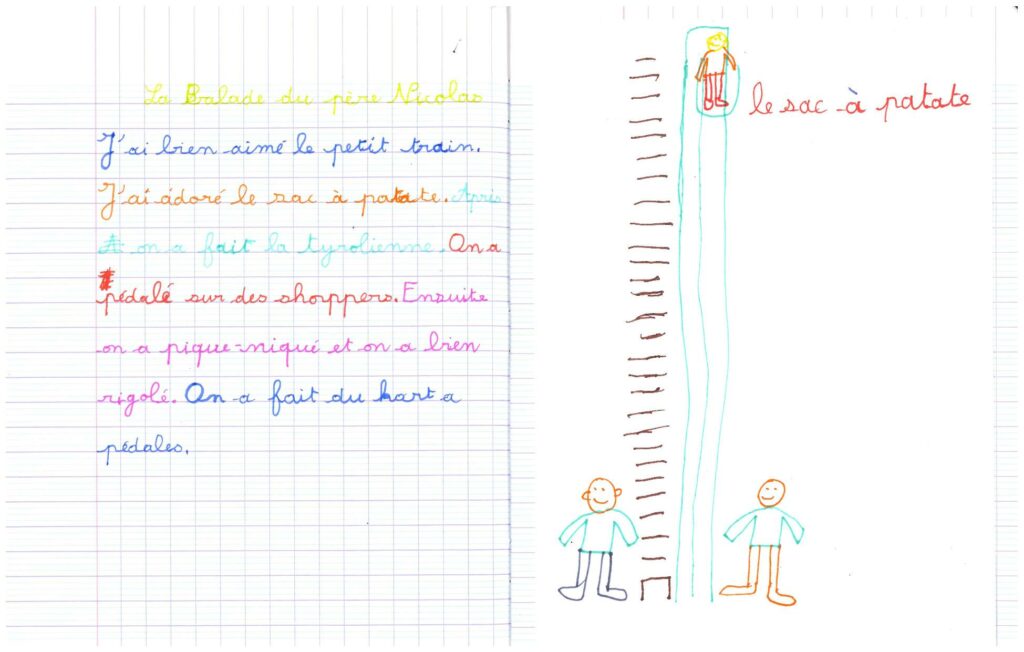 La Balade du père Nicolas
J'ai bien aimé le petit train.
J'ai adoré le sac à patate. Après
on a fait la tyrolienne. On a
pédalé sur des shoppers. Ensuite
on a pique-niqué et on a bien
rigolé. On a fait du kart a
pédales.
le sac à patate